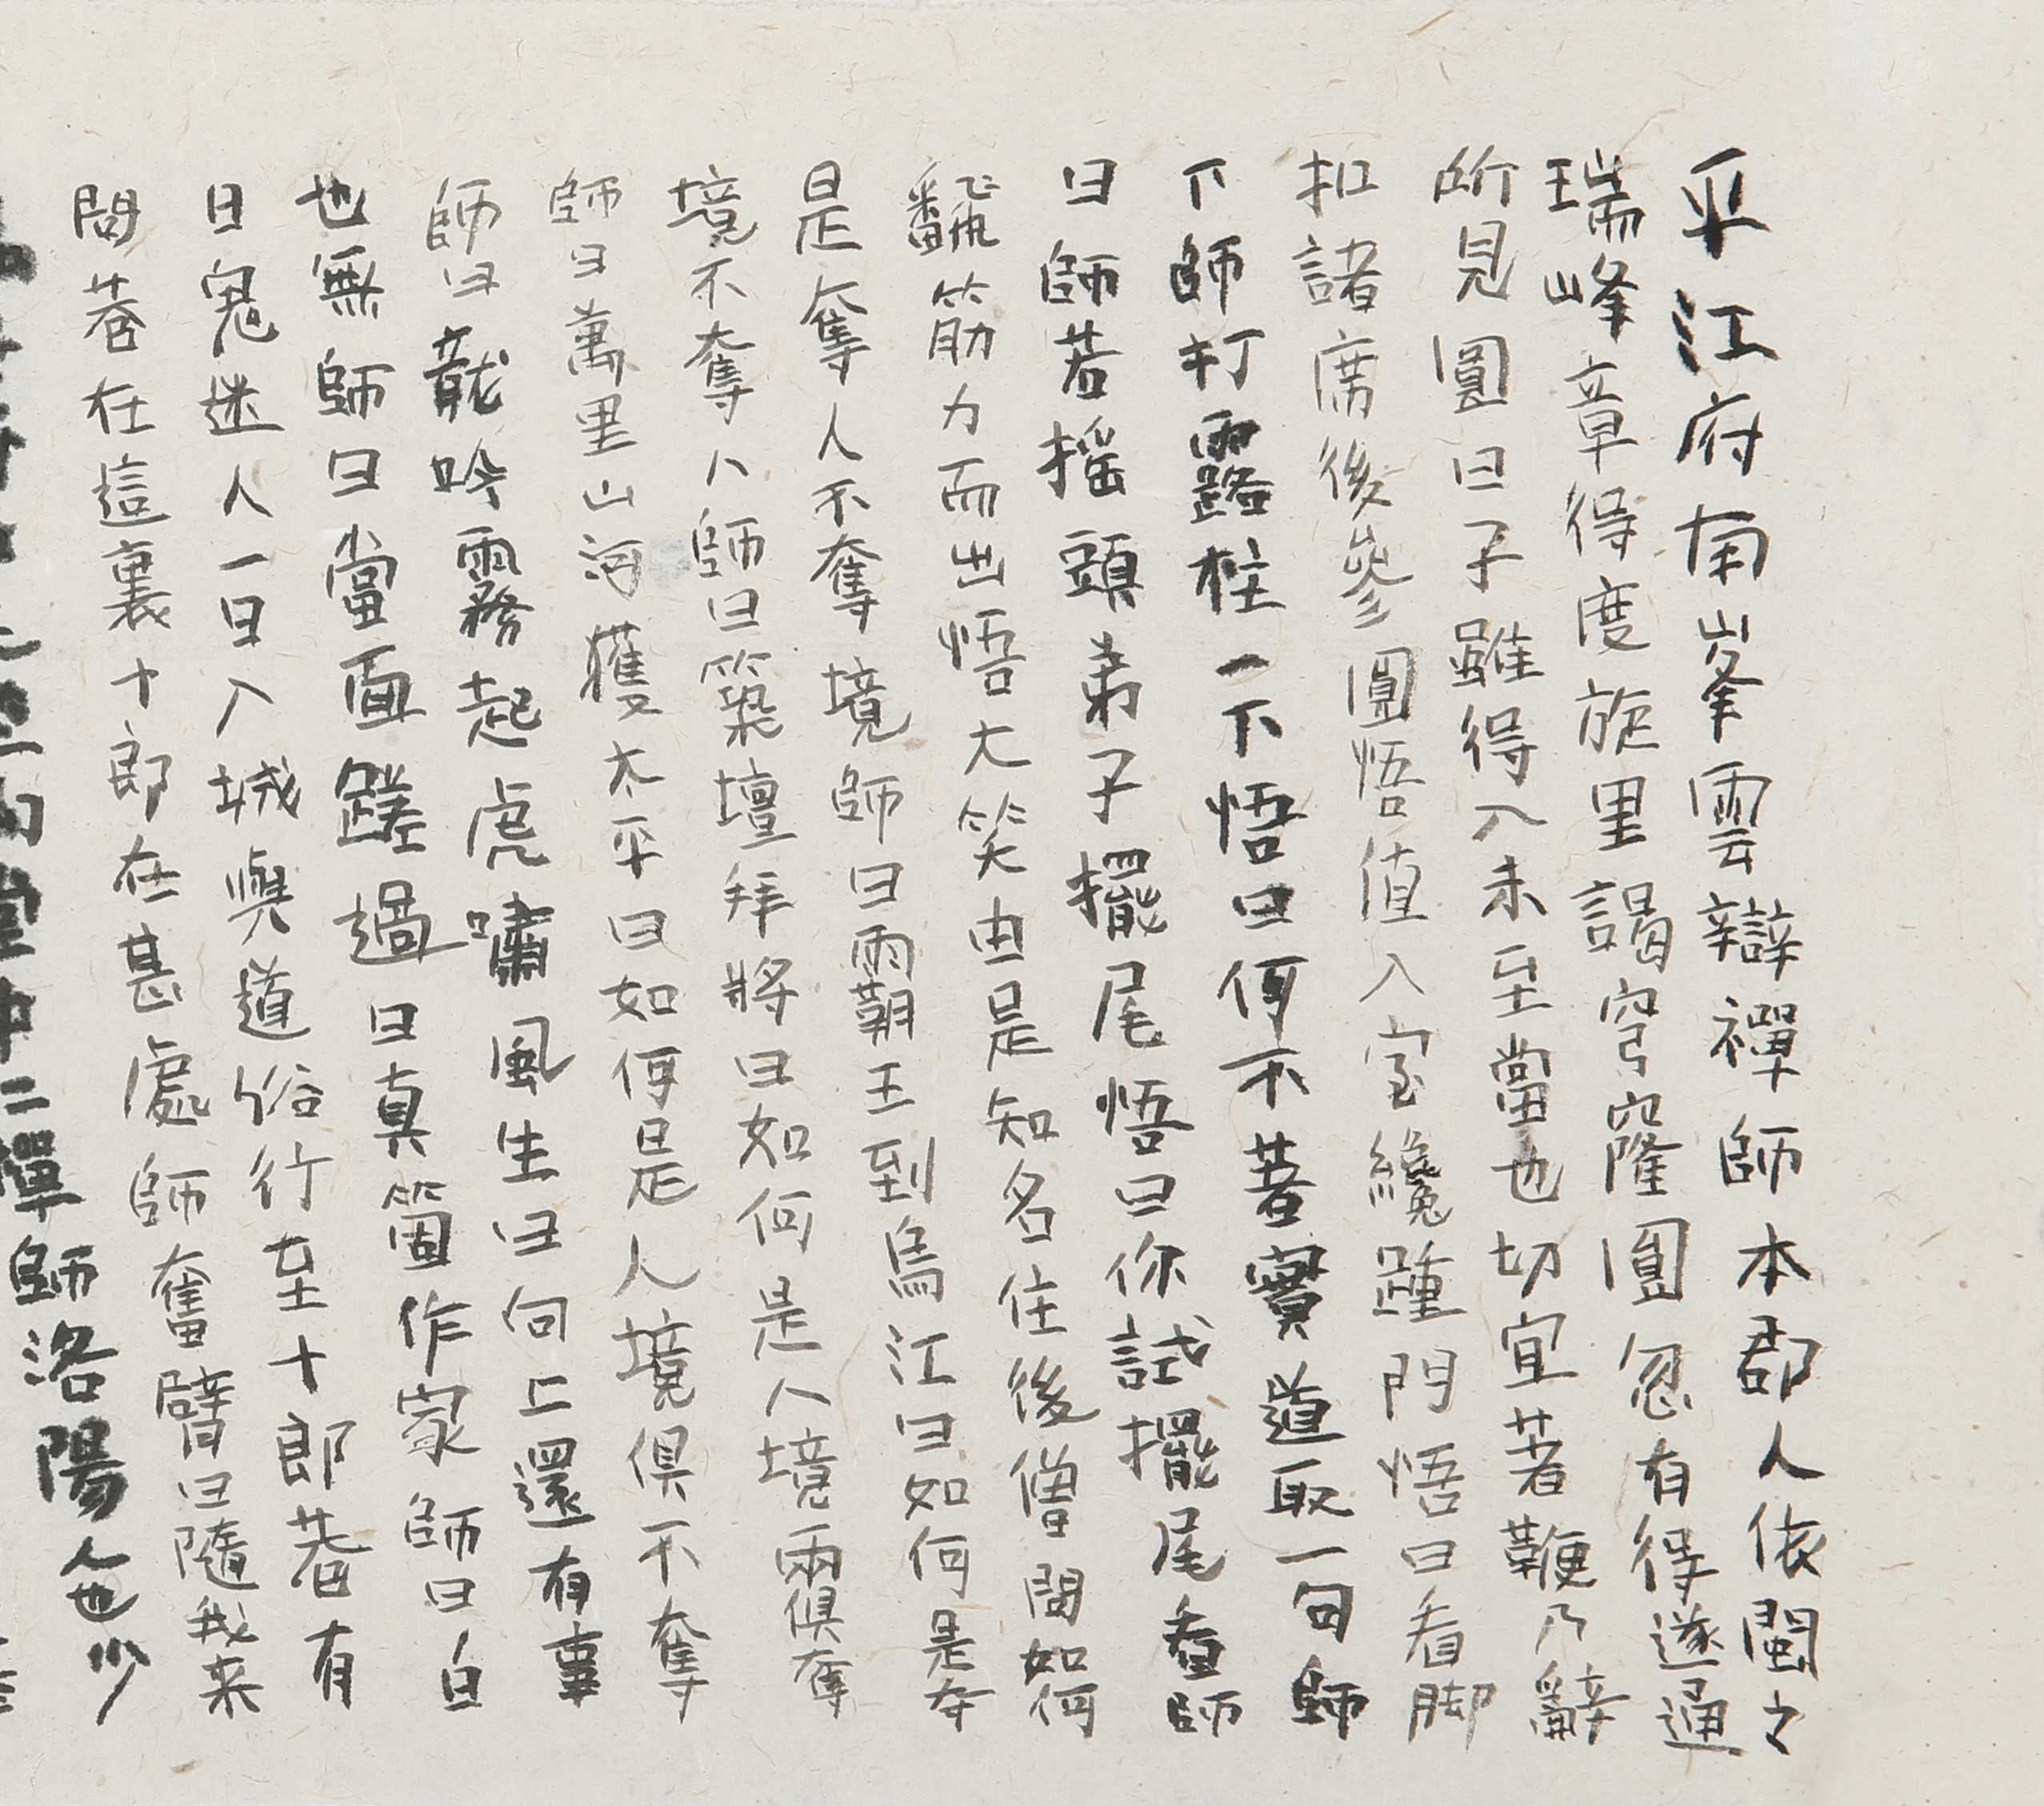 平江府南峯雲辯禪師本郡人依閩之
瑞峰章得度旋里謁穹窿圓忽有得遂通
所見圓曰子雖得入未至當也切宜著鞭乃辭
扣諸席後參圓悟值入室纔踵門悟曰看脚
下師打露柱一下悟曰何不著實道取一句師
曰師若搖頭弟子擺尾悟曰你試擺尾看師
翻筋力而出悟大笑由是知名住後僧問如何
是奪人不奪境師曰霸王到烏江曰如何是奪
境不奪人師曰築壇拜將曰如何是人境兩俱奪
師曰萬里山河獲太平曰如何是人境俱不奪
師曰龍吟霧起虎嘯風生曰向上還有事
也無師曰當面蹉過曰真箇作家師曰白
日鬼迷人一日入城與道俗行至十郎巷有
問巷在這裏十郎在甚處師奮臂曰隨我来
二禪師洛陽人也少